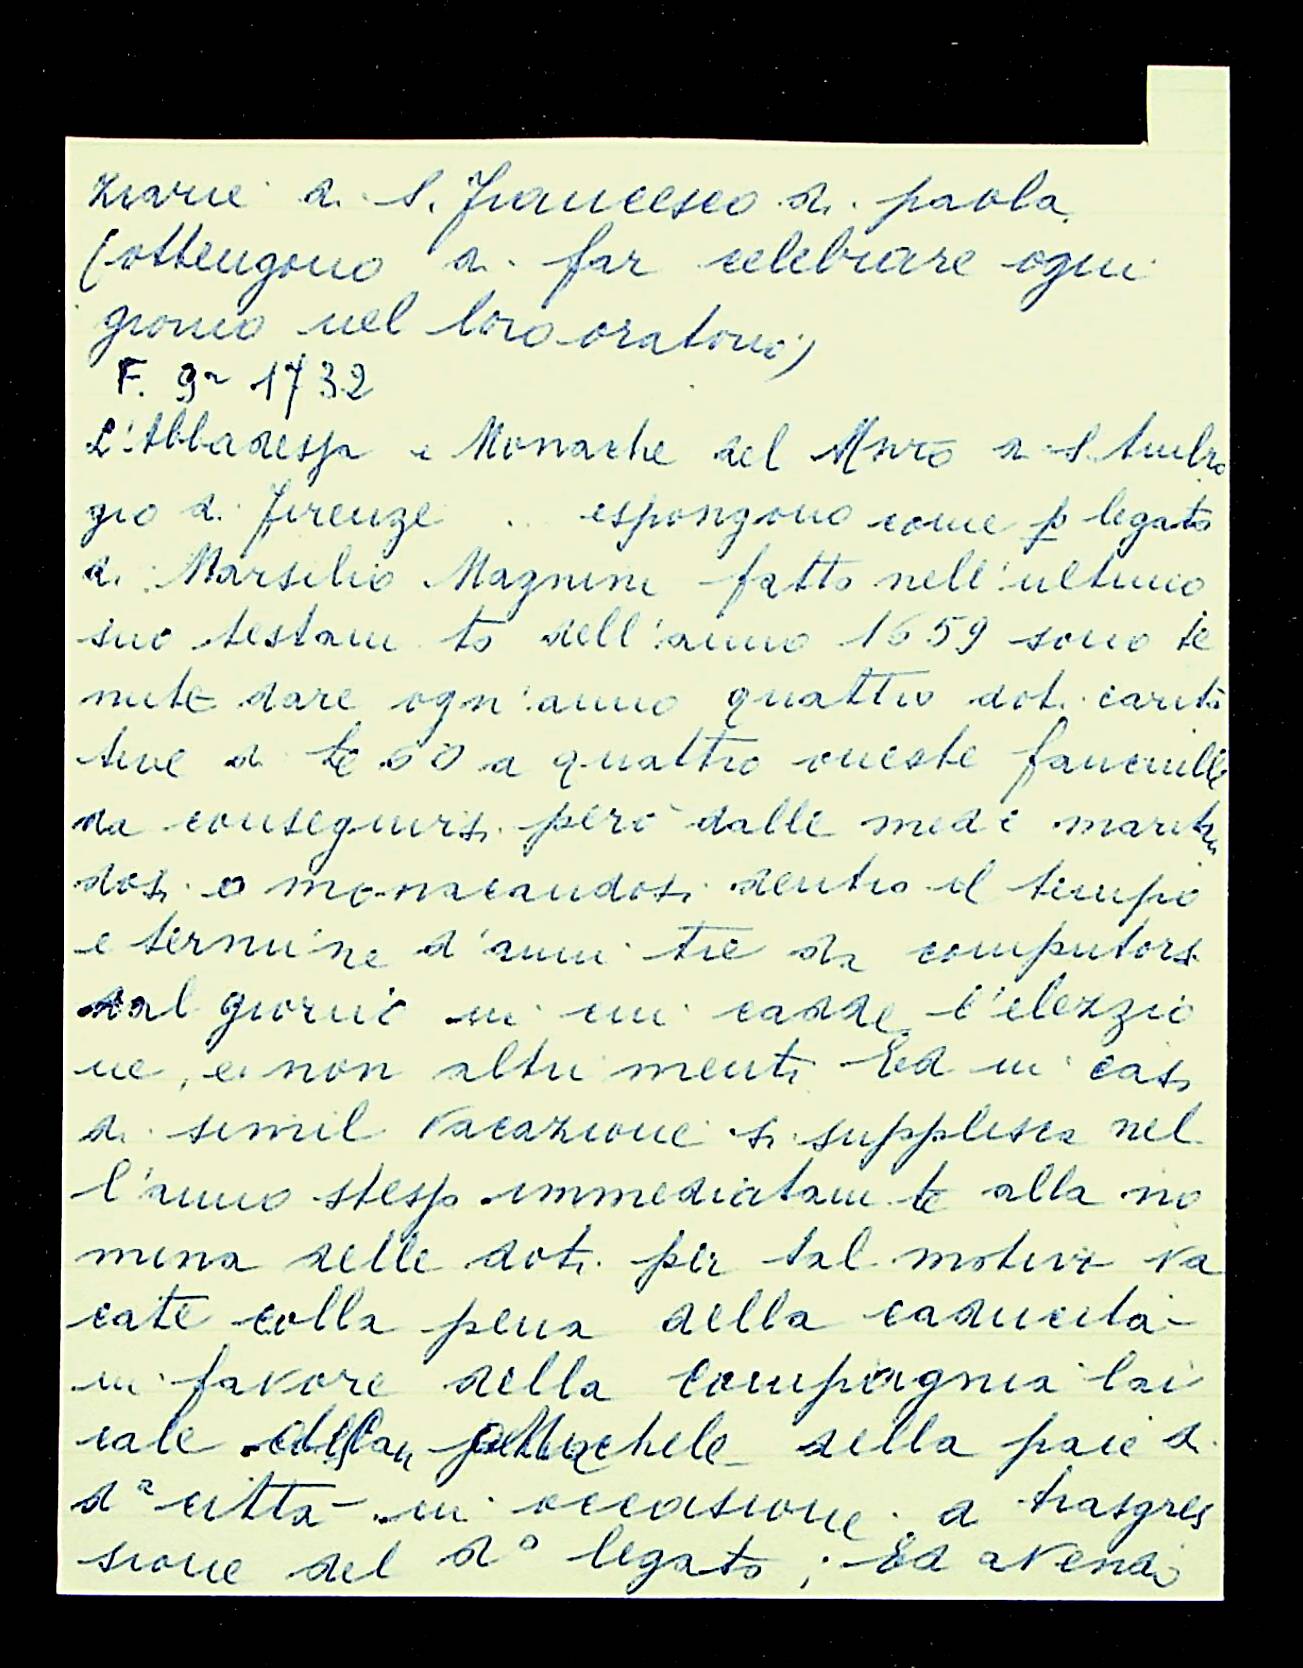 ziarie di S. Francesco di paola
(ottengono di far celebrare ogni
giorno nel loro oratorio)
F. 9~ 1732
L'Abbadessa e Monache del Mnro di S. Ambro
gio di Firenze .. espongono come p legato
di Marsilio Magnini fatto nell'ultimo
suo testam to dell'anno 1659 sono te
nute dare ogn'anno quattro doti carita
tive di 60 a quattro oneste fanciulle
da conseguirsi però dalle mede marita
dosi o monacandosi dentro il tempo
e termine d'anni tre da computarsi
dal giorno in cui cadde l'elezzio
ne, e non altri menti Ed in caso
di simil vacazione si supplisca nel
l'anno stesso immediatam te alla no
mina delle doti per tal motivo va
cate colla pena della caducità
in favore della Compagnia lai
cale della pace di
da città in occasione di trasgres
sione del do legato; Ed avendo